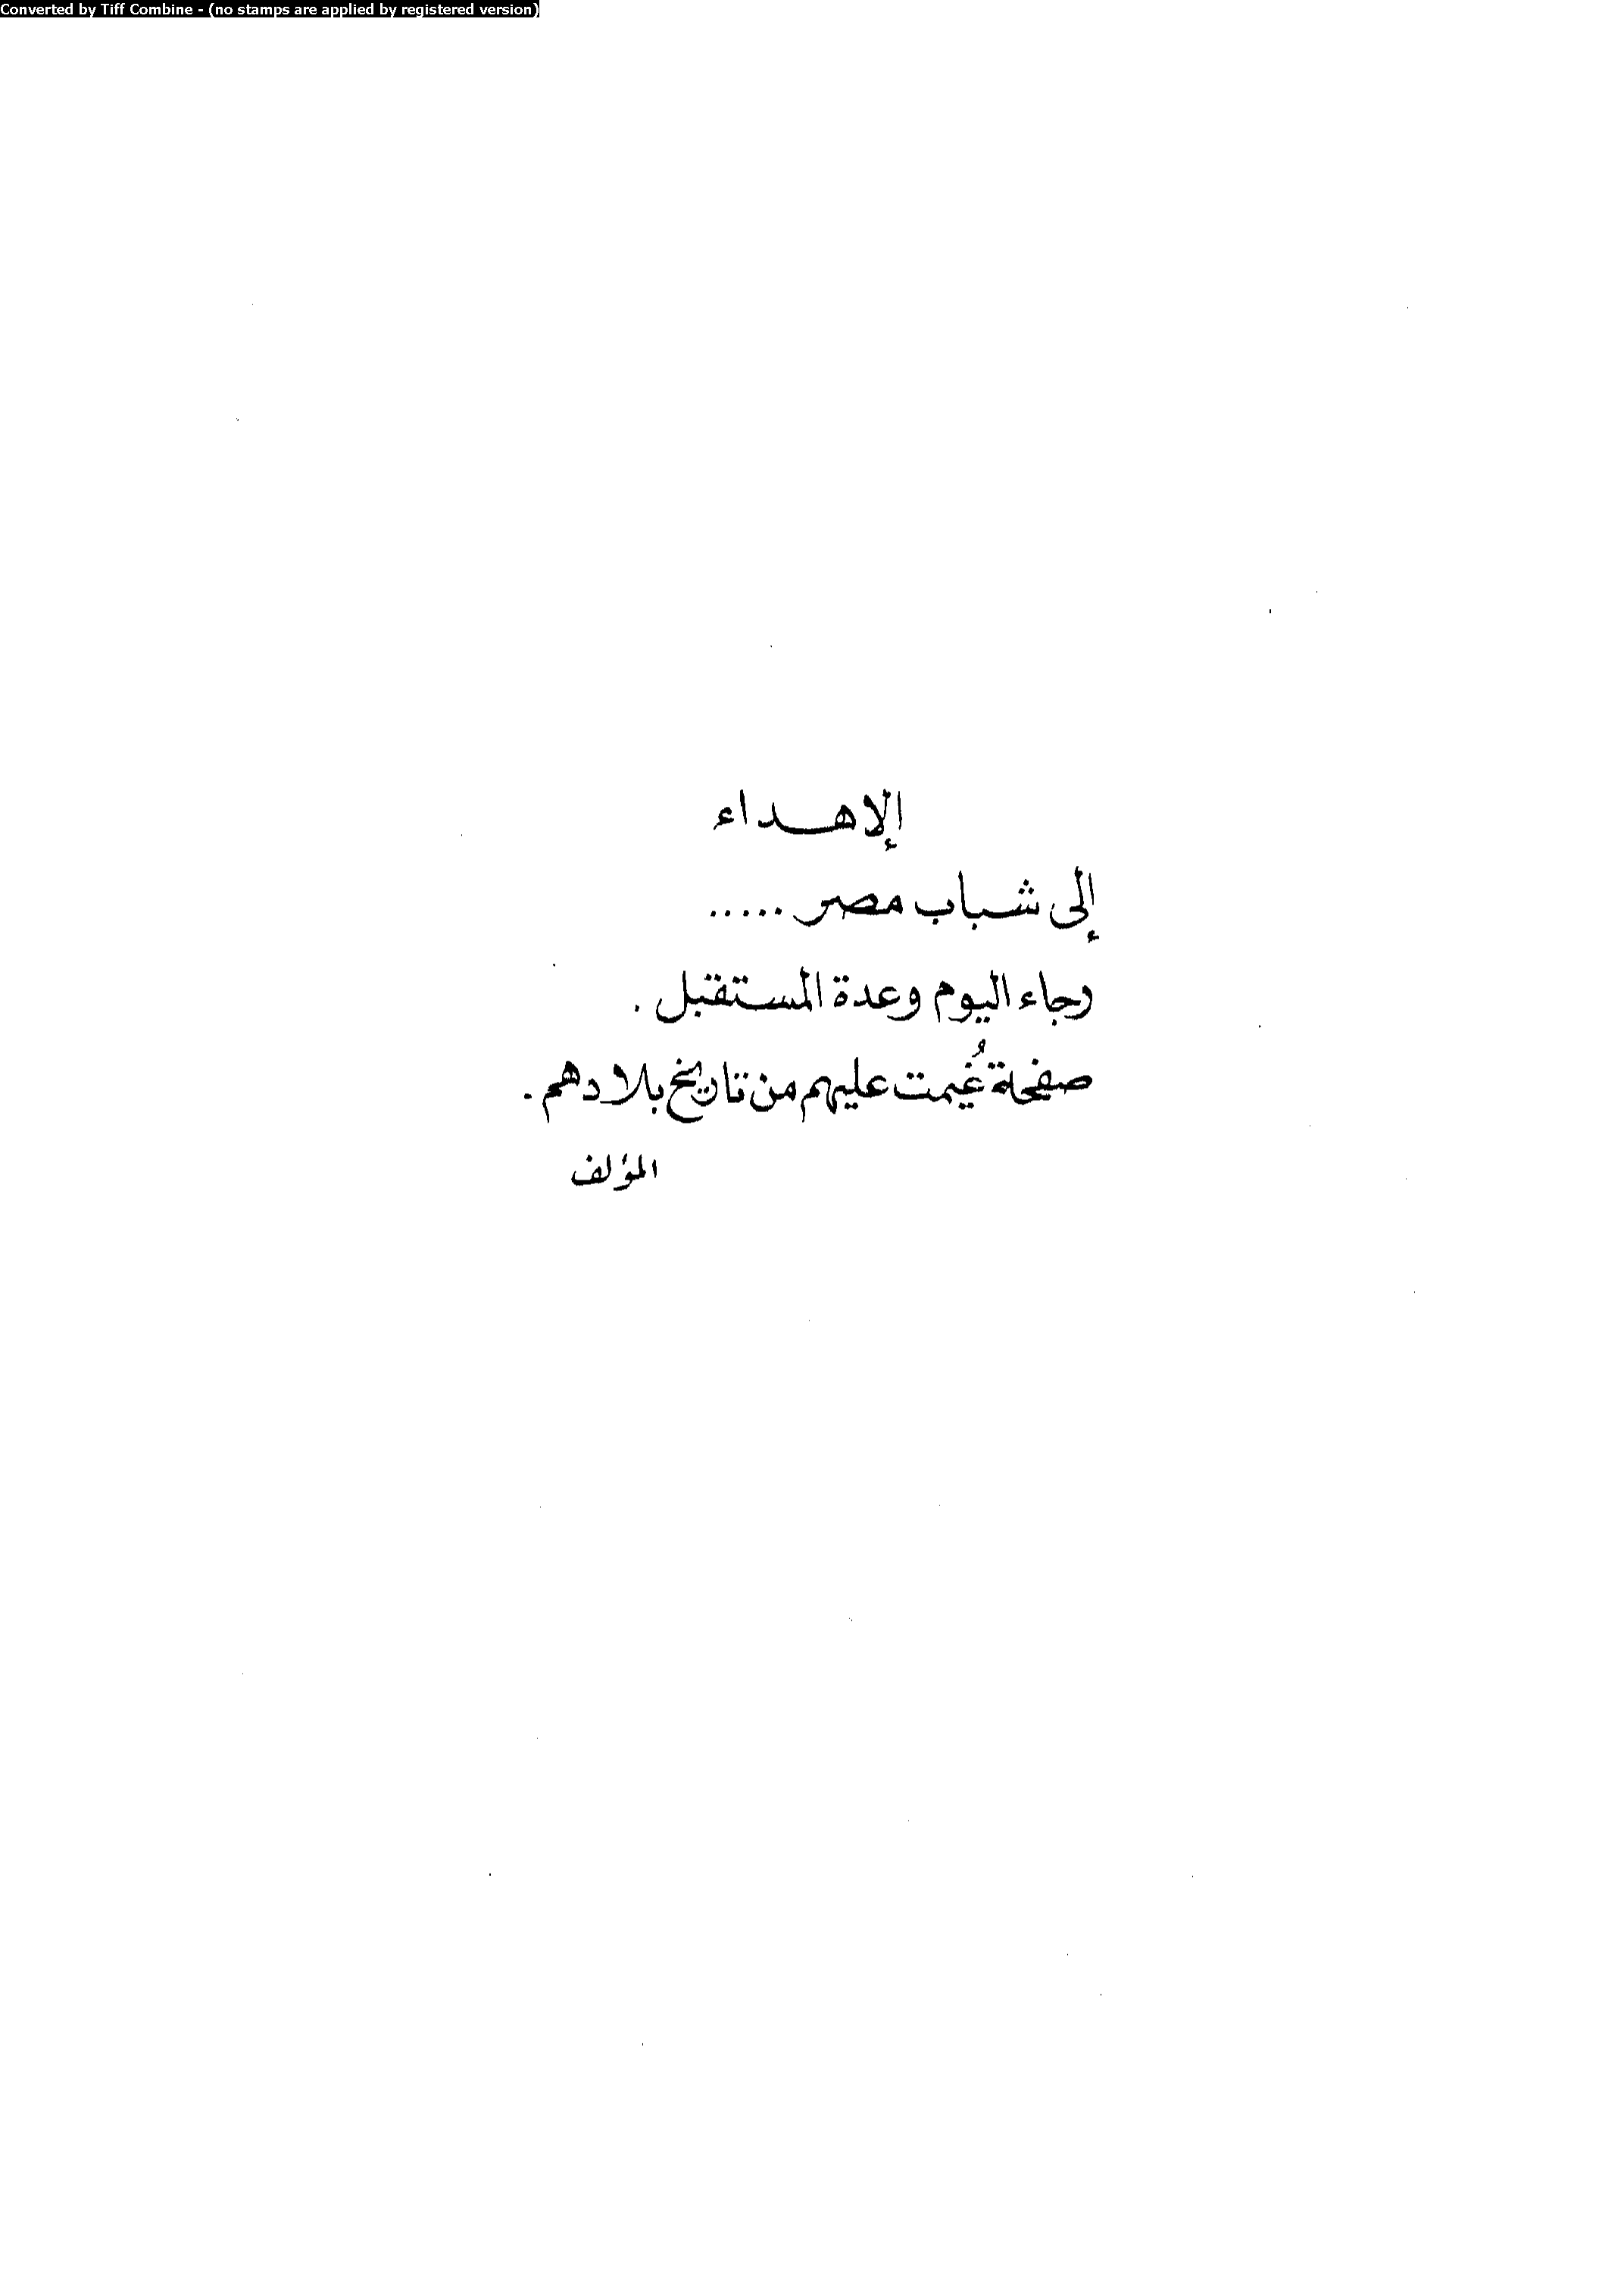 Converted by Tiff Combine - (no stamps are applied by registered version)
الإهداء
إلى شباب مصر .....
رجاء اليوم وعدة المستقبل .
صفحة غُيمت عليهم من تاريخ بلادهم .
المؤلف